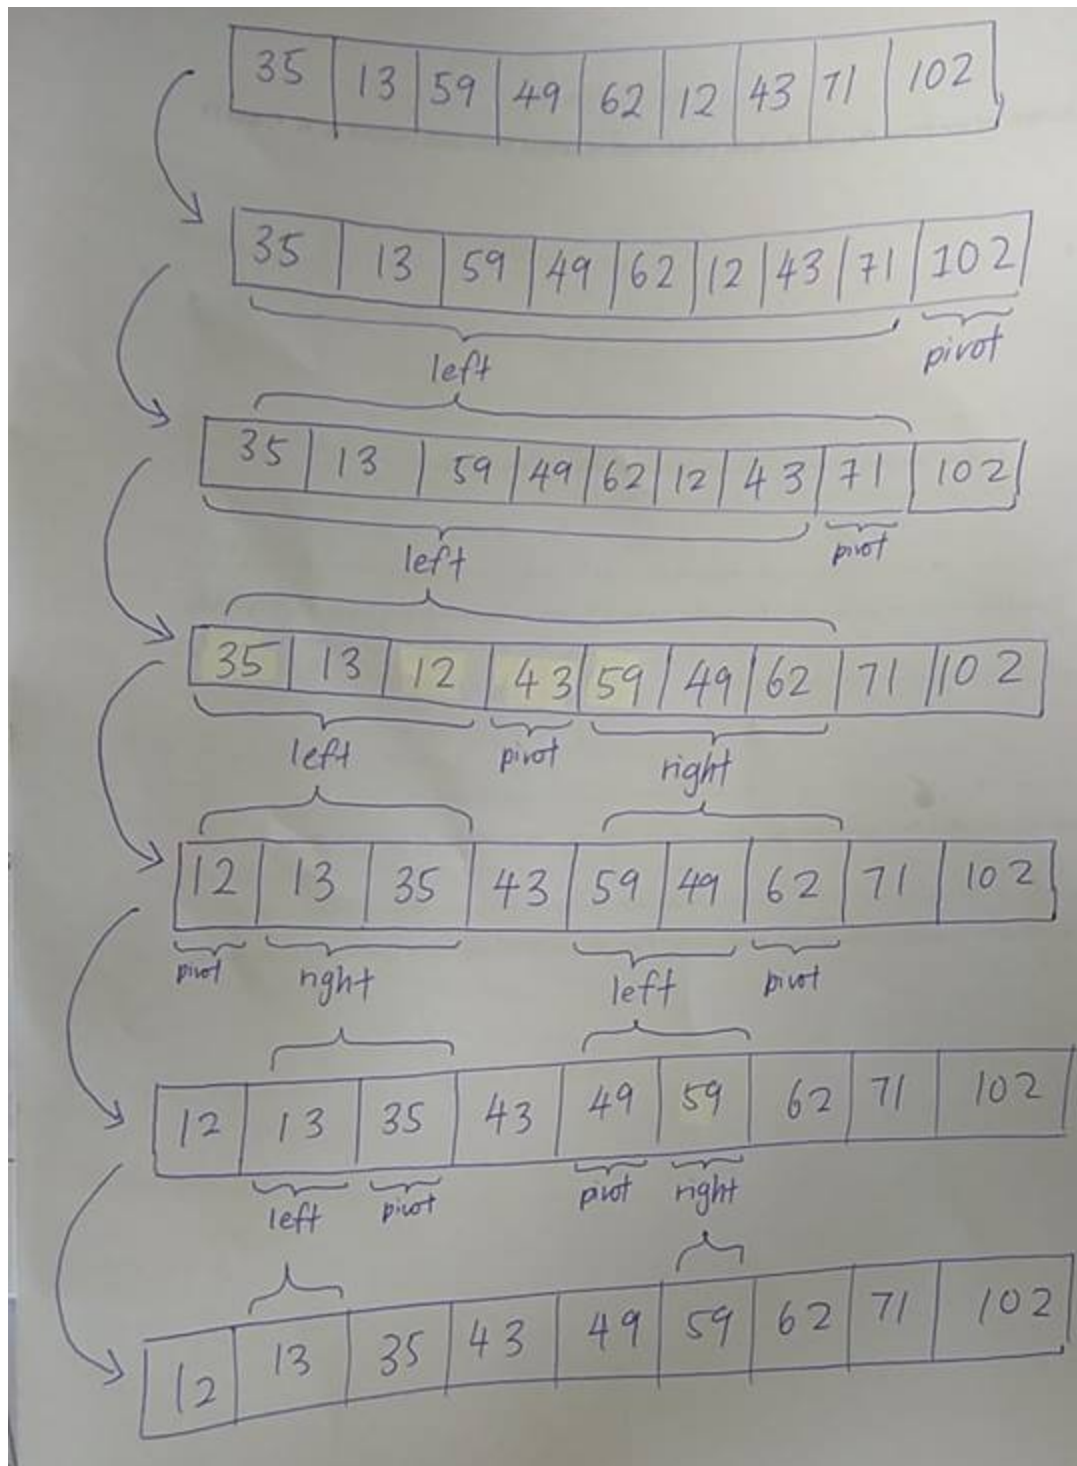 35 13 59 49 62 12 43 71 102
35 13 59 49 62 12 43 71 102
left pivot
35 13 59 49 62 12 43 71 102
left pivot
35 13 12 43 59 49 62 71 102
left pivot right
12 13 35 43 59 49 62 71 102
pivot right left pivot
12 13 35 43 49 59 62 71 102
left pivot pivot right
12 13 35 43 49 59 62 71 102